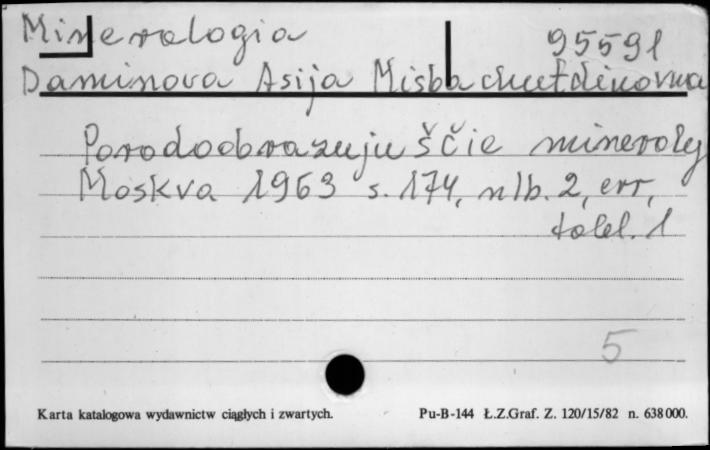 Mineralogia 95591
Daminova Asija Misbachutdinovna
Porodoobrazujuščie mineraly
Moskva 1963 s. 174, nlb. 2, err,
tabl. 1
5
Karta katalogowa wydawnictw ciągłych i zwartych. Pu-B-144 Ł.Z.Graf. Z. 120/15/82 n. 638000.